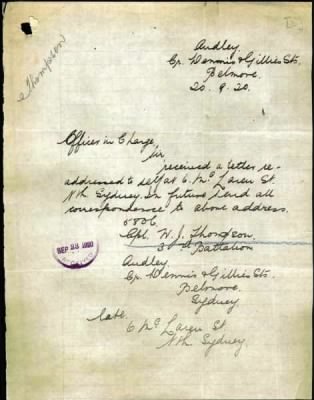 Thompson
Audley,
Cr. Dennis & Gillies Sts.
Belmore.
20.9.20.
Officer in Charge,
Sir
received a letter re-
addressed to self at 6 Mc Laren St.
Nth Sydney. In future send all
correspondence to above address.
5806
Cpl. W. J. Thompson.
3rd Battalion
SEP 23 1920
Audley
Cr. Dennis & Gillies Sts.
Belmore.
Sydney
late.
6 Mc Laren St
Nth Sydney.